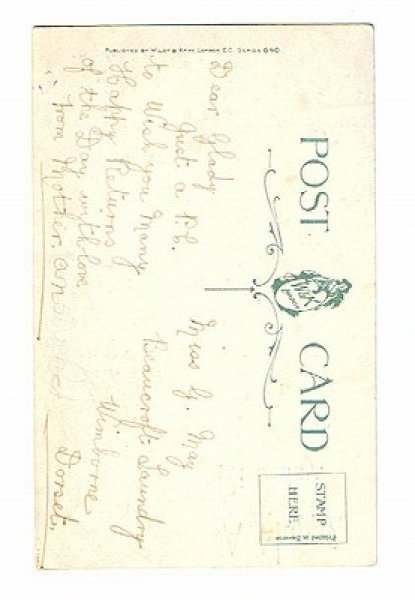 PUBLISHED BY WILDT & KRAY, LONDON E.C. SERIES
POST CARD
W&K
STAMP
HERE
Printed in Bavaria
Dear Glady
Just a P.C.
to Wish you Many
Happy Returns
of the Day with love
from Mother and
Miss G. May
Beaucroft Laundry
Wimborne
Dorset.